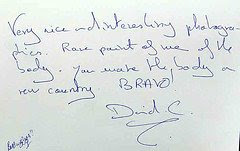 Very nice and interesting photogra-
phies. Rare point of vew of the
body. You make the body a
new country. BRAVO!
David C.